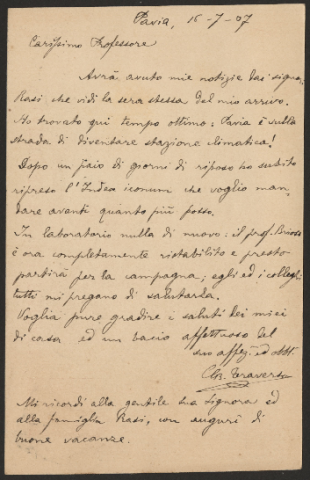 Pavia, 16-7-07
Carissimo Professore
Avrà avuto mie notizie dai signori
Rasi che vidi la sera stessa del mio arrivo.
Ho trovato qui tempo ottimo: Pavia è sulla
strada di diventare stazione climatica!
Dopo un paio di giorni di riposo ho subito
ripreso l'Index iconum che voglio man-
dare avanti quanto più posso.
In laboratorio nulla di nuovo: il prof. Briosi
è ora completamente ristabilito e presto
partirà per la campagna; egli ed i colleghi
tutti mi pregano di salutarla.
Voglia pure gradire i saluti dei miei
di casa ed un bacio affettuoso del
suo affez. ed obbl.
Traverso
Mi ricordi alla gentile sua Signora ed
alla famiglia Rasi, con auguri di
buone vacanze.